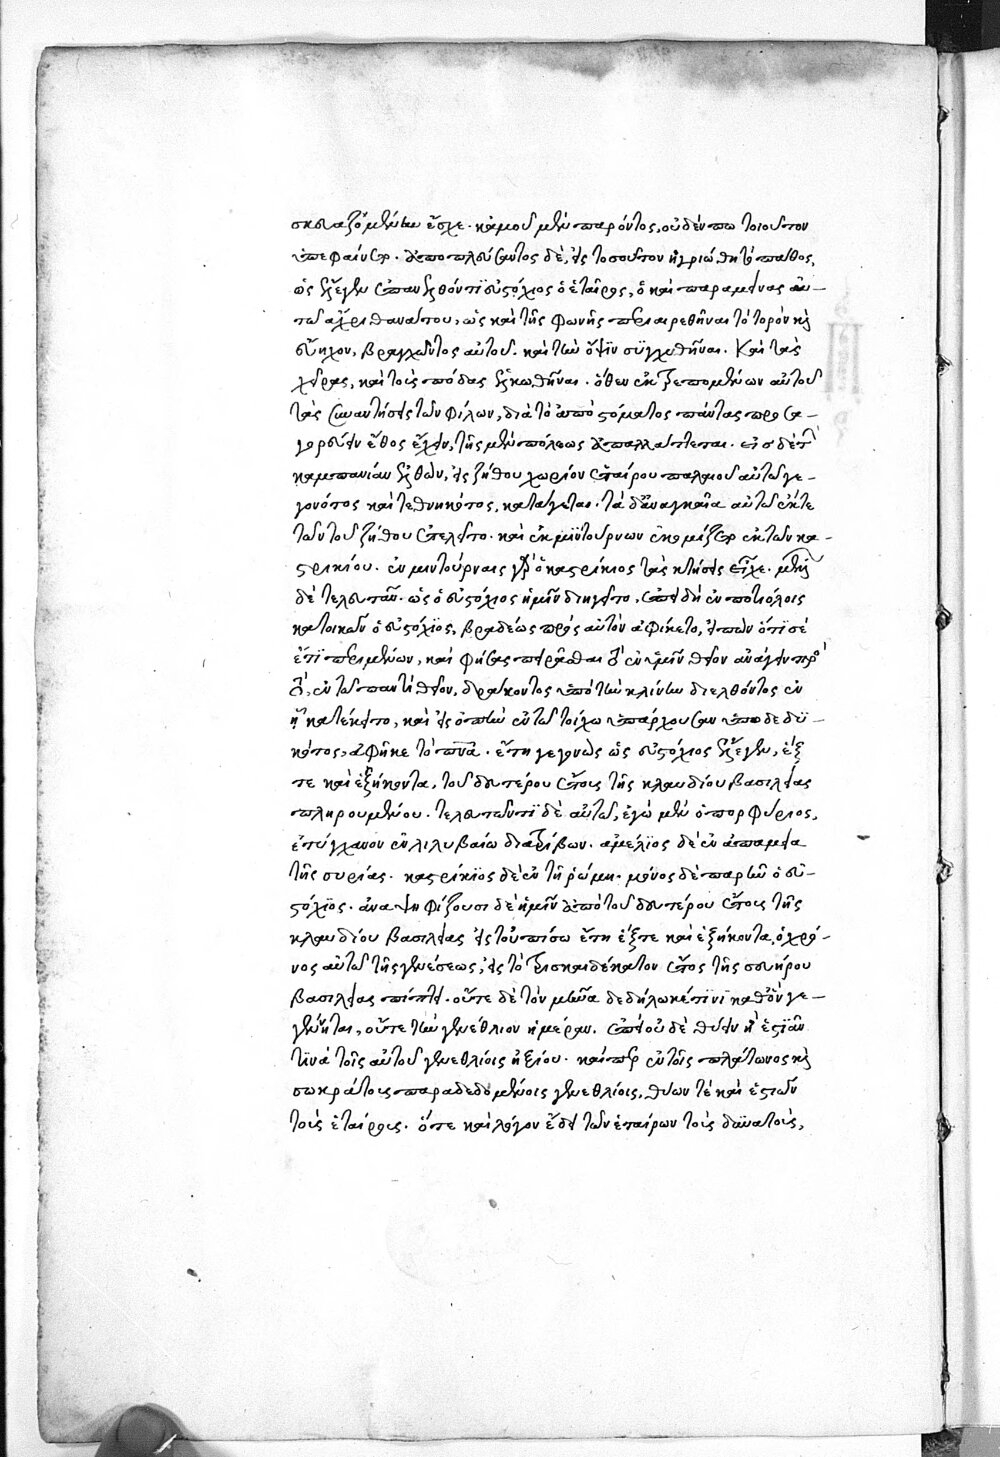 σκευαζομένην ἔσχε. κἀμοῦ μὲν παρόντος, οὐδέν πω τοιοῦτον
ὑπεφαίνετο. ἀποπλεύσαντος δὲ, εἰς τοσοῦτον ἠγριώθη τὸ πάθος,
ὡς ἔλεγεν ἐπανελθόντι εὐστόχιος ὁ ἑταῖρος, ὁ καὶ παραμείνας αὐ-
τῷ ἄχρι θανάτου, ὡς καὶ τῆς φωνῆς περιαιρεθῆναι τὸ τορὸν καὶ
εὔηχον, βραγχῶντος αὐτοῦ. καὶ τὴν ὄψιν συγχυθῆναι. Καὶ τὰς
χεῖρας, καὶ τοὺς πόδας ἑλκωθῆναι. ὅθεν ἐκτρεπομένων αὐτοῦ
τὰς συναντήσεις τῶν φίλων, διὰ τὸ ἀπὸ στόματος πάντας προσα-
γορεύειν ἔθος ἔχειν, τῆς μὲν πόλεως ἀπαλλάττεται. εἰς δὲ τὴν
καμπανίαν ἐλθὼν, εἰς ζήθου χωρίον ἑταίρου παλαιοῦ αὐτῷ γε-
γονότος καὶ τεθνηκότος, κατάγεται. τὰ δ' ἀναγκαῖα αὐτῷ ἔκ τε
τῶν τοῦ ζήθου ἐτελεῖτο. καὶ ἐκ μιντούρνων ἐκομίζετο ἐκ τῶν κα-
στρικίου. ἐν μιντούρναις γὰρ ὁ καστρίκιος τὰς κτήσεις εἶχε. μέλλων
δὲ τελευτᾶν. ὡς ὁ εὐστόχιος ἡμῖν διηγεῖτο, ἐπειδὴ ἐν ποτιόλοις
κατοικῶν ὁ εὐστόχιος, βραδέως πρὸς αὐτὸν ἀφίκετο, εἰπὼν ὅτι σὲ
ἔτι περιμένων, καὶ φήσας πειρᾶσθαι τὸ ἐν ἡμῖν θεῖον ἀνάγειν πρὸς
τὸ, ἐν τῷ παντὶ θεῖον, δράκοντος ὑπὸ τὴν κλίνην διελθόντος ἐν
ᾗ κατέκειτο, καὶ εἰς ὀπὴν ἐν τῷ τοίχῳ ὑπάρχουσαν ὑποδεδυ-
κότος, ἀφῆκε τὸ πνεῦμα. ἔτη γεγονὼς ὡς εὐστόχιος ἔλεγεν, ἕξ
τε καὶ ἑξήκοντα, τοῦ δευτέρου ἔτους τῆς κλαυδίου βασιλείας
πληρουμένου. τελευτῶντι δὲ αὐτῷ, ἐγὼ μὲν ὁ πορφύριος,
ἐτύγχανον ἐν λιλυβαίῳ διατρίβων. ἀμέλιος δὲ ἐν ἀπαμείᾳ
τῆς συρίας. καστρίκιος δὲ ἐν τῇ ῥώμῃ. μόνος δὲ παρῆν ὁ εὐ-
στόχιος. ἀναψηφίζουσι δὲ ἡμῖν ἀπὸ τοῦ δευτέρου ἔτους τῆς
κλαυδίου βασιλείας εἰς τοὐπίσω ἔτη ἕξ τε καὶ ἑξήκοντα, ὁ χρό-
νος αὐτῷ τῆς γενέσεως, εἰς τὸ τρισκαιδέκατον ἔτος τῆς σευήρου
βασιλείας πίπτει. οὔτε δὲ τὸν μῆνα δεδήλωκέ τινι καθ' ὃν γε-
γένηται, οὔτε τὴν γενέθλιον ἡμέραν. ἐπεὶ οὐδὲ θύειν ἢ ἑστιᾶν
τινὰ τοῖς αὐτοῦ γενεθλίοις ἠξίου. καίπερ ἐν τοῖς πλάτωνος καὶ
σωκράτους παραδεδομένοις γενεθλίοις, θύων τὲ καὶ ἑστιῶν
τοὺς ἑταίρους. ὅτε καὶ λόγον ἔδει τῶν ἑταίρων τοὺς δυνατοὺς,